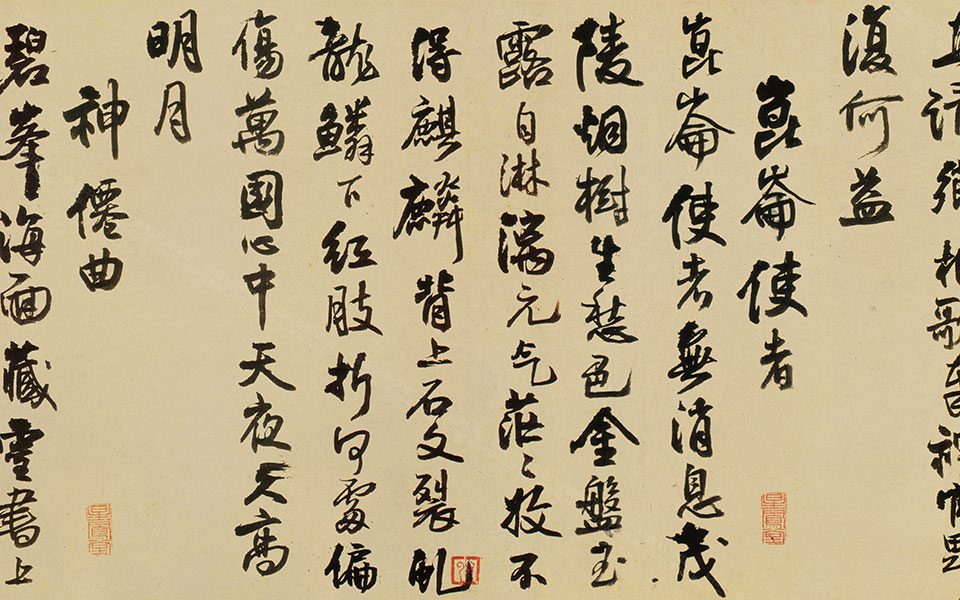 復何益
崑崙使者
崑崙使者無消息茂
陵烟樹生愁色金盤玉
露自淋漓元气茫〻收不
得麒麟背上石文裂虬
龍鱗下紅肢折何處偏
傷萬國心中天夜久高
明月
神僊曲
碧峯海面藏靈書上